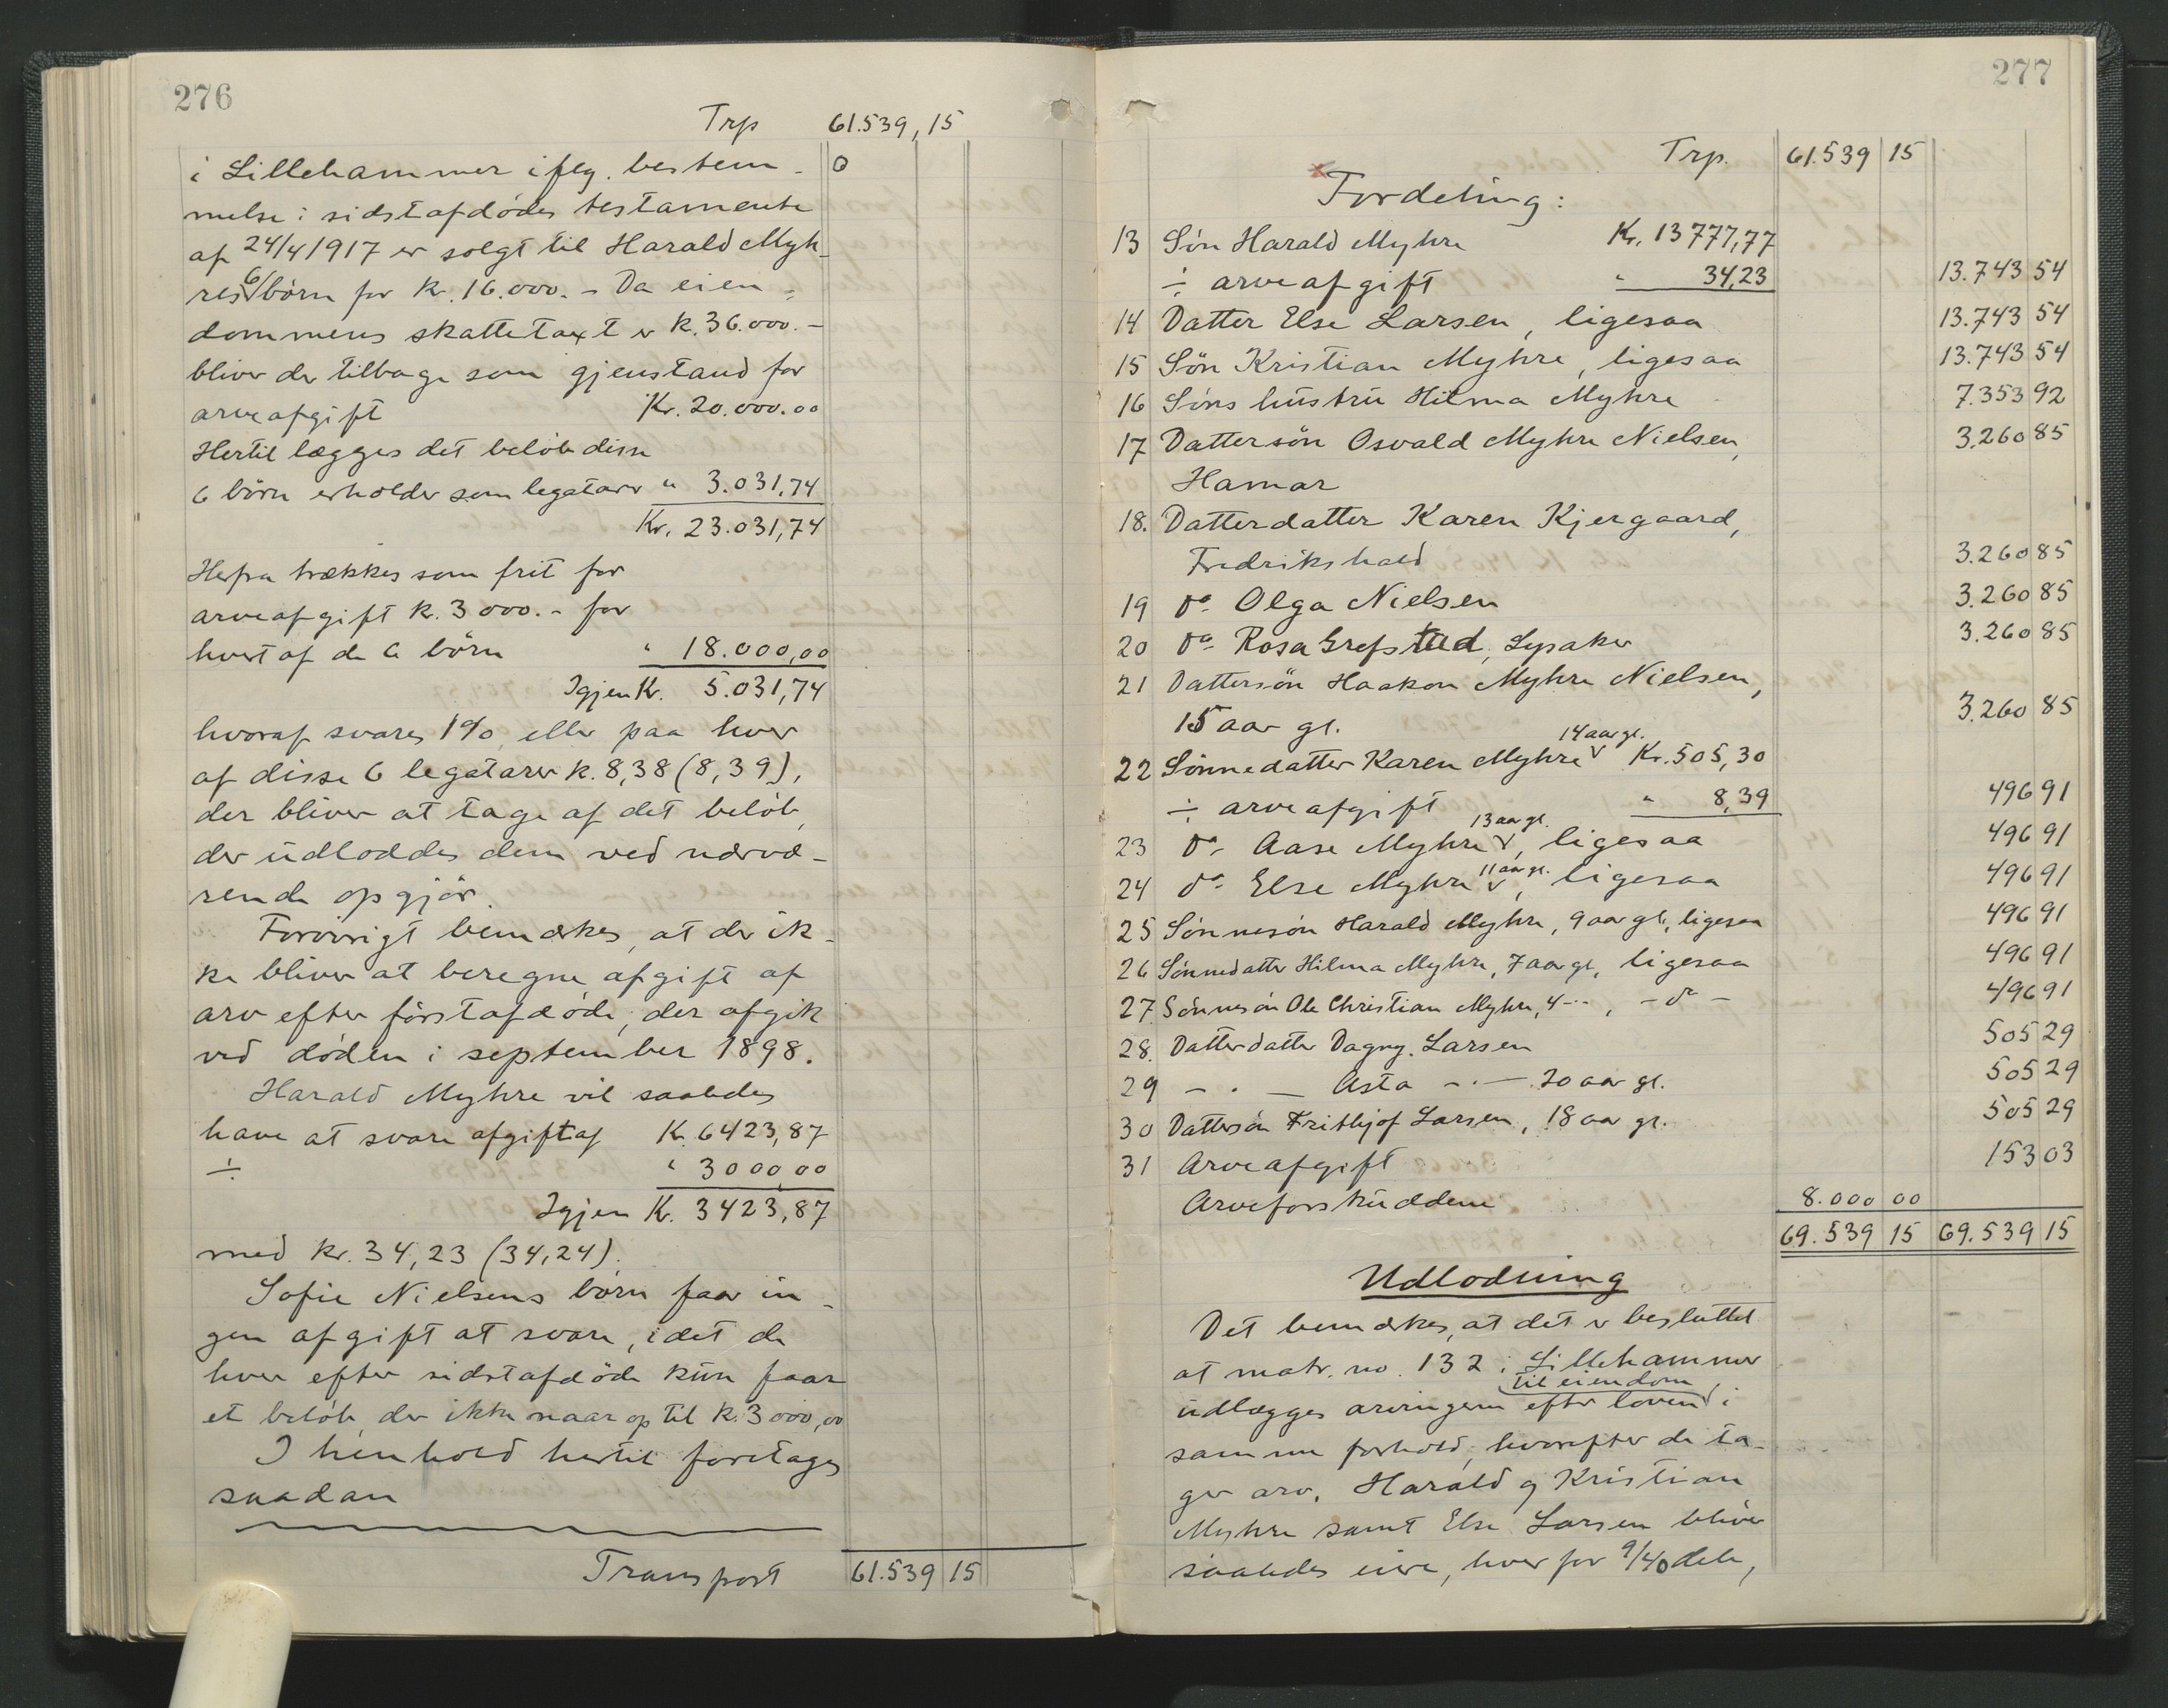 276
Trp 61.539,15
i Lillehammer ifлg. bestem- 0
melse i sidstafdødes testamente
af 24/4 1917 er solgt til Harald Myh-
res 6 børn for kr. 16.000.- Da eien-
dommens skattetaxt er k. 36.000.-
bliver der tilbage som gjenstand for
arveafgift Kr. 20.000.00
Hertil lægges det beløb disse
6 børn erholder som legatarer " 3.031,74
Kr. 23.031,74
Herfra trækkes som frit for
arveafgift k. 3000.- for
hvert af de 6 børn " 18.000,00
Igjen Kr. 5.031,74
hvoraf svares 1%, eller paa hver
af disse 6 legatarer k. 8,38 (8,39),
der bliver at tage af det beløb,
der udloddes dem ved nærvæ-
rende opgjør.
Forøvrigt bemærkes, at der ik-
ke bliver at beregne afgift af
arv efter førstafdøde, der afgik
ved døden i september 1898.
Harald Myhre vil saaledes
have at svare afgift af K. 6423,87
÷ " 3000,00
Igjen K. 3423,87
med kr. 34,23 (34,24).
Sofie Nielsens børn faar in-
gen afgift at svare, idet de
hver efter sidstafdøde kun faar
et beløb, der ikke naar op til K. 3000,00
I henhold hertil foretages
saadan
Transport 61.539 15
277
Trp. 61.539 15
x Fordeling:
13 Søn Harald Myhre Kr. 13777,77
÷ arveafgift " 34,23 13.743 54
14 Datter Else Larsen, ligesaa 13.743 54
15 Søn Kristian Myhre, ligesaa 13.743 54
16 Søns hustru Hilma Myhre 7.353 92
17 Dattersøn Osvald Myhre Nielsen, 3.260 85
Hamar
18. Datterdatter Karen Kjergaard,
Fredrikshald 3.260 85
19 do Olga Nielsen 3.260 85
20 do Rosa Grefstad, Lysaker 3.260 85
21 Dattersøn Haakon Myhre Nielsen,
15 aar gl. 3.260 85
14 aar gl.
22 Sønnedatter Karen Myhre v Kr. 505,30
÷ arveafgift " 8,39 496 91
13 aar gl.
23 do Aase Myhre v, ligesaa 496 91
11 aar gl.
24 do Else Myhre v, ligesaa 496 91
25 Sønnesøn Harald Myhre, 9 aar gl, ligesaa 496 91
26 Sønnedatter Hilma Myhre, 7 aar gl, ligesaa 496 91
27. Sønnesøn Ole Christian Myhre, 4 -·-, - do - 496 91
28. Datterdatter Dagny. Larsen 505 29
29 - · - Asta - · - 20 aar gl. 505 29
30 Dattersøn Frithjof Larsen, 18 aar gl. 505 29
31 Arveafgift 153 03
Arveforskuddene 8.000 00
69.539 15 69.539 15
Udlodning
Det bemærkes, at det er besluttet
at matr. no. 132 i Lillehammer
til eiendom
udlægges arvingerne efter loven i
samme forhold, hvorefter de ta-
ger arv. Harald og Kristian
Myhre samt Else Larsen bliver
saaledes eiere, hver for 9/40 dele,